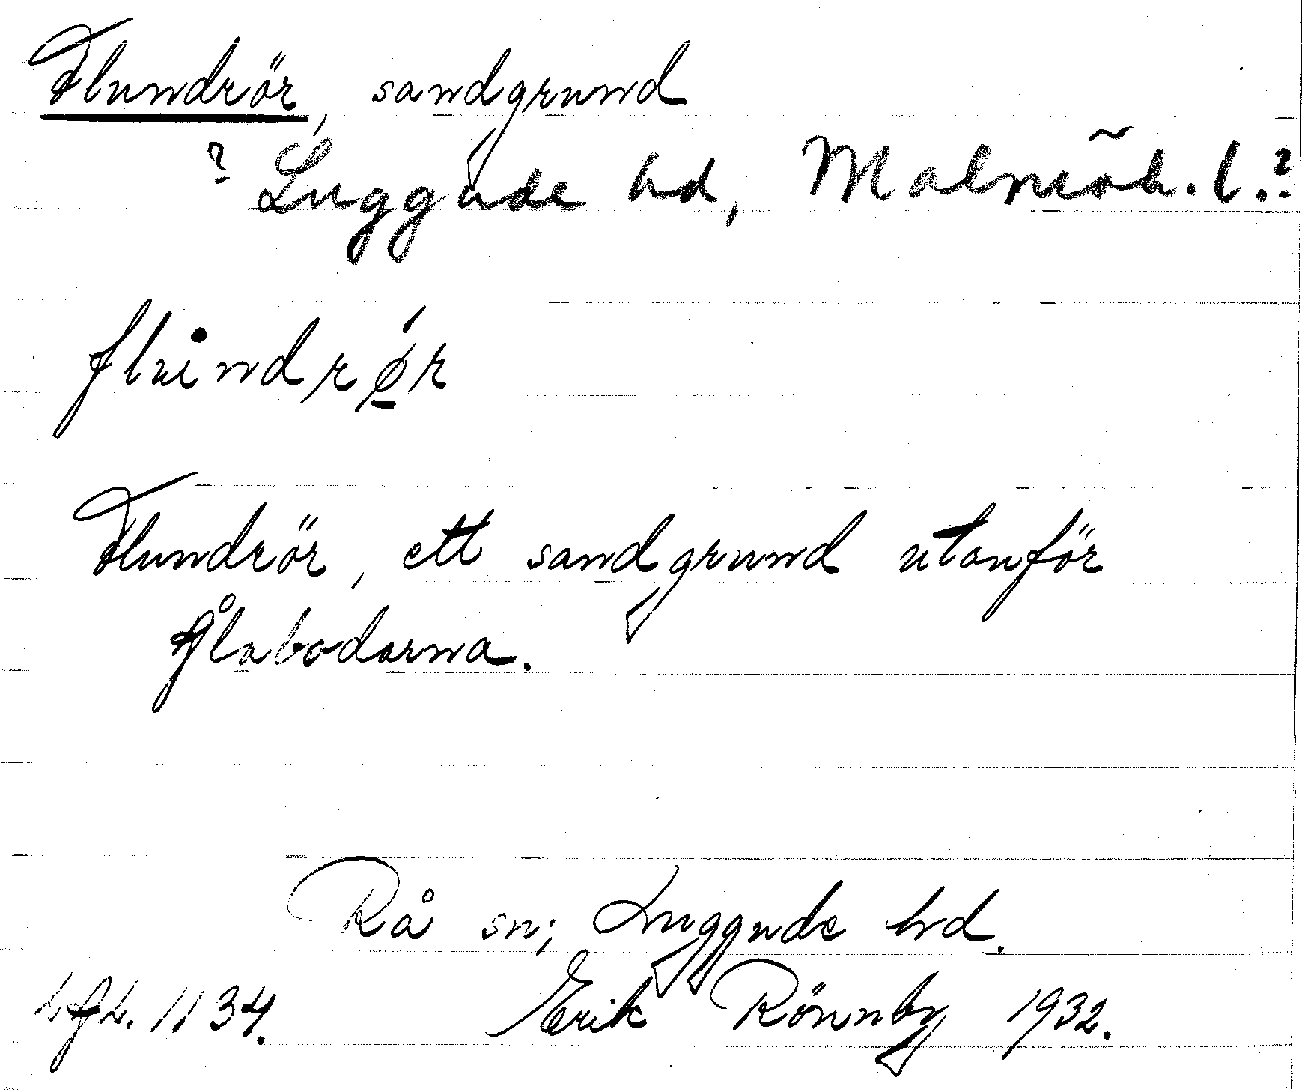 Flundrör, sandgrund
? Luggude hd, Malmöh. l.?
flundrør
Flundrör, ett sandgrund utanför
Ålabodarna.
Rå sn; Luggude hd.
1134. Erik Rönnby 1932.